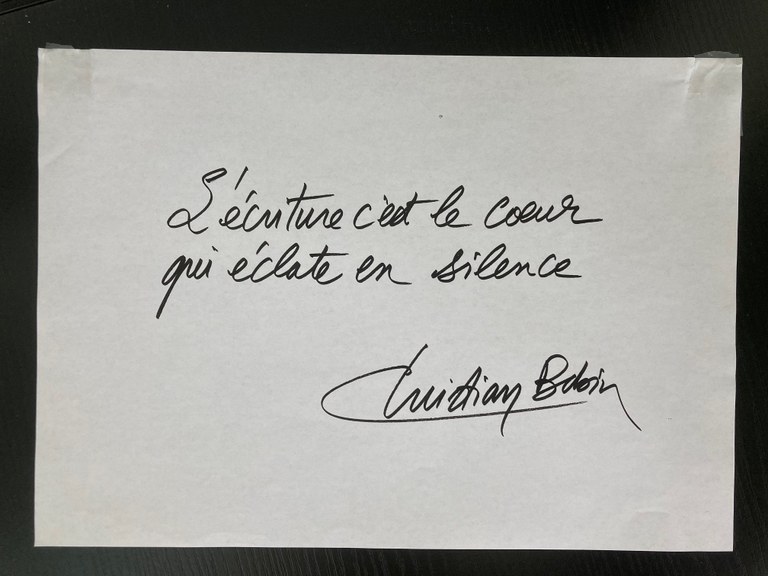 L'écriture c'est le coeur
qui éclate en silence
Christian Bobin